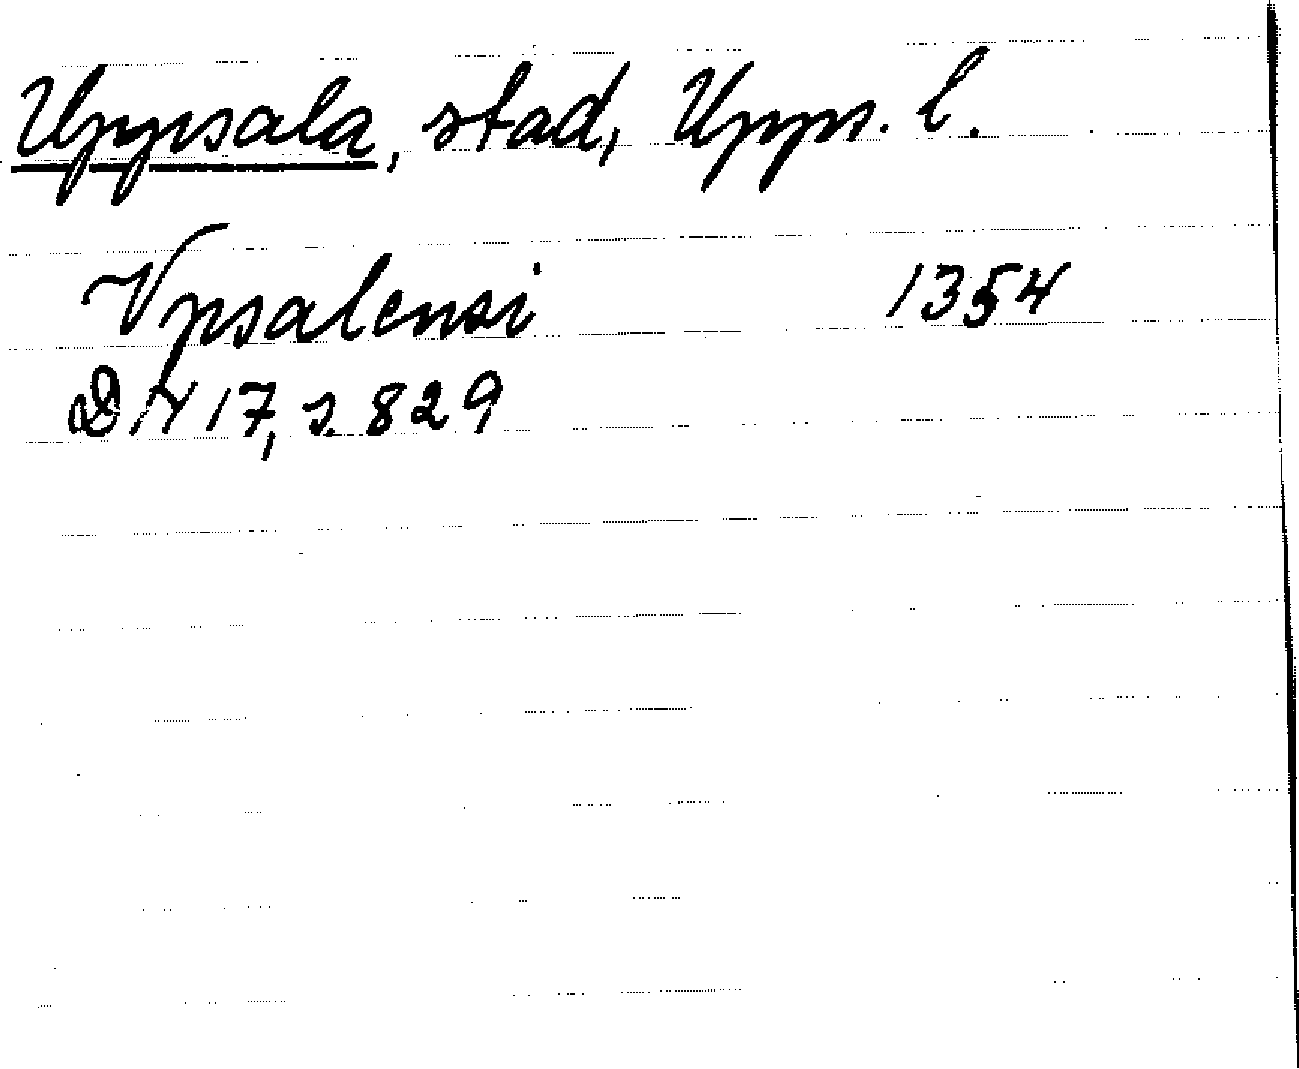 Uppsala, stad, Upps. l.
Vpsalensi 1354
DN 17, s. 829